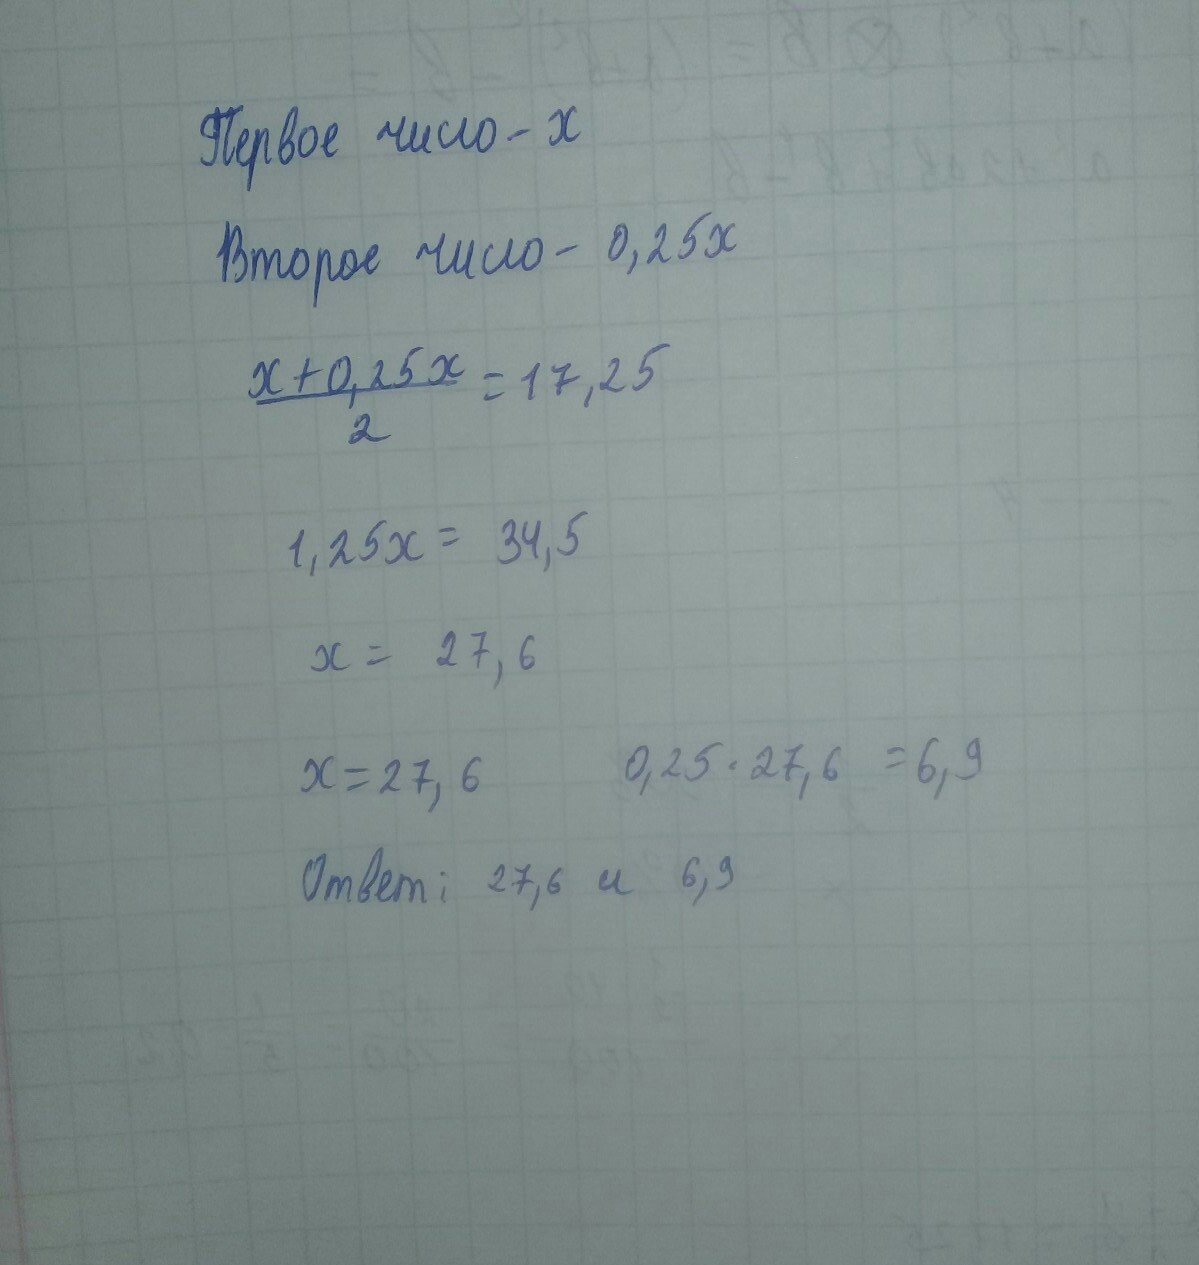 Первое число - x
Второе число - 0,25x
x+0,25x
2
= 17,25
1,25x = 34,5
x = 27,6
x = 27,6 0,25 · 27,6 = 6,9
Ответ: 27,6 и 6,9